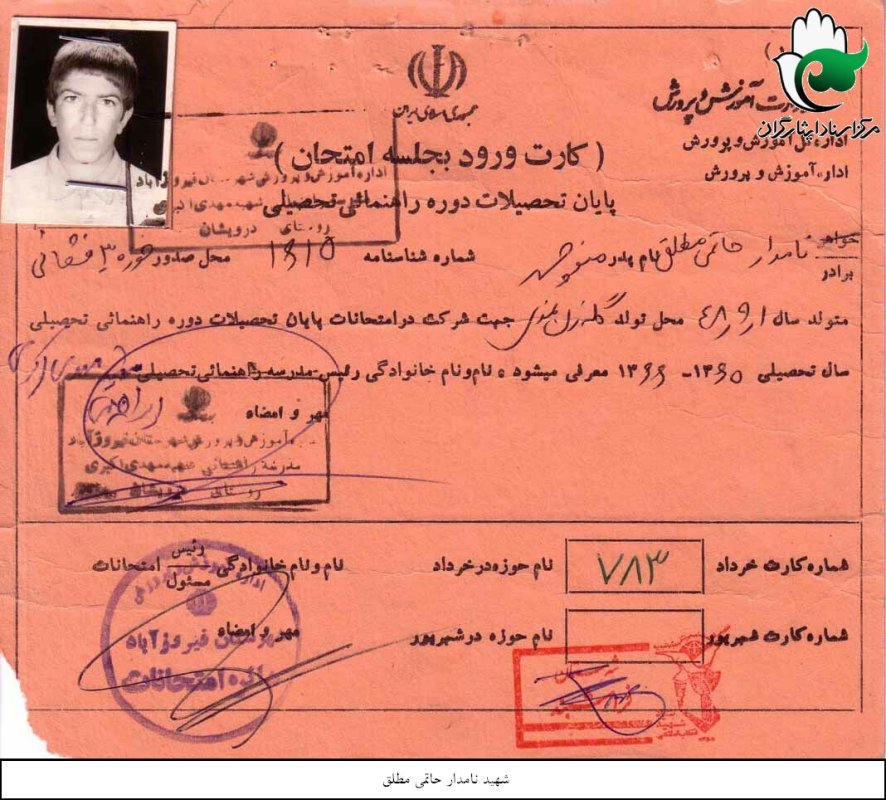 جمهوری اسلامی ایران
وزارت آموزش و پرورش
مرکز اسناد ایثارگران
اداره کل آموزش و پرورش
اداره آموزش و پرورش
( کارت ورود بجلسه امتحان )
پایان تحصیلات دوره راهنمائی تحصیلی
اداره آموزش و پرورش شهرستان فیروزآباد
شهید مهدی اکبری
روستای درویشان
خواهر
برادر
نامدار حاتمی مطلق نام پدر منوچهر شماره شناسنامه ۱۶۱۵ محل صدور حوزه ۳
متولد سال ۴۸/۹/۱ محل تولد گله زن جهت شرکت در امتحانات پایان تحصیلات دوره راهنمائی تحصیلی
سال تحصیلی ۱۳۶۵ - ۱۳۶۶ معرفی میشود ۰ نام و نام خانوادگی رئیس مدرسه راهنمائی تحصیلی
مهر و امضاء
اداره آموزش و پرورش شهرستان فیروزآباد
مدرسه راهنمائی شهید مهدی اکبری
روستای درویشان
شماره کارت خرداد ۷۸۳ نام حوزه در خرداد نام و نام خانوادگی رئیس مسئول امتحانات
شماره کارت شهریور نام حوزه در شهریور مهر و امضاء
اداره آموزش و پرورش
شهرستان فیروزآباد
دایره امتحانات
شهید نامدار حاتمی مطلق